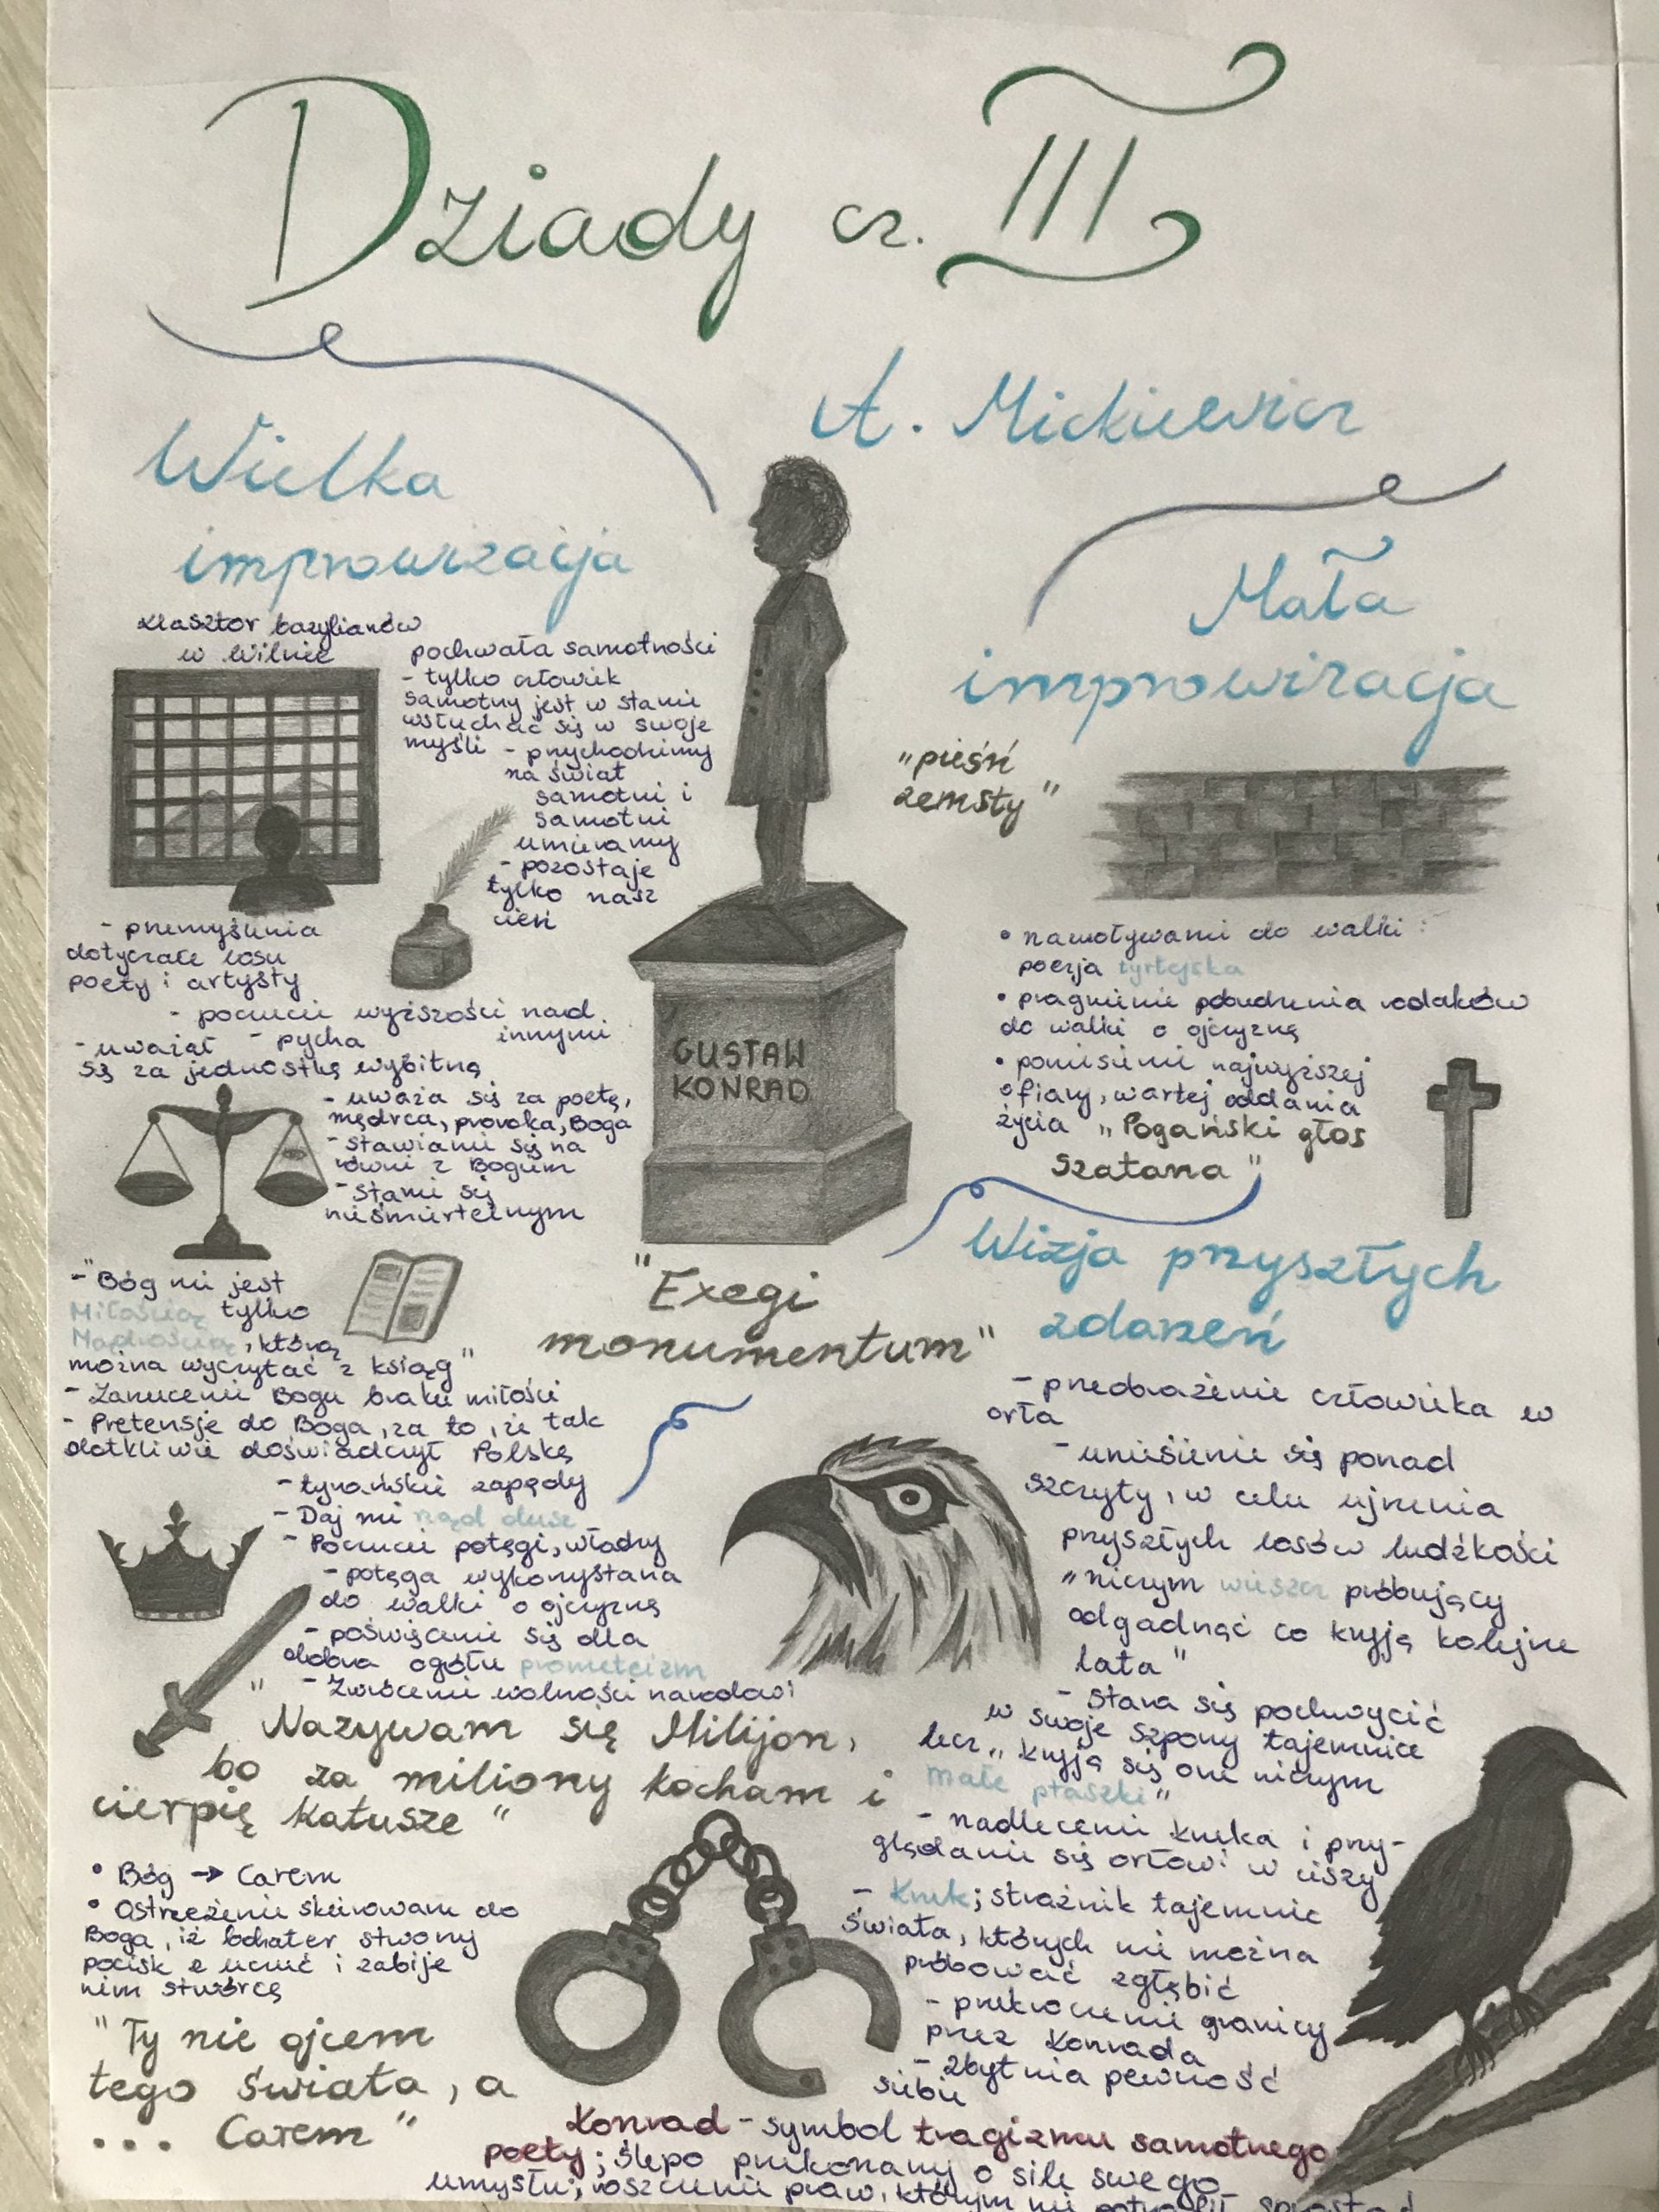 Dziady cz. III
A. Mickiewicz
Wielka
improwizacja
klasztor bazylianów
w Wilnie
pochwała samotności
- tylko człowiek
samotny jest w stanie
wsłuchać się w swoje
myśli - przychodzimy
na świat
samotni i
samotni
umieramy
- pozostaje
tylko nasz
cień
- przemyślenia
dotyczące losu
poety i artysty
- poczucie wyższości nad
innymi
- pycha
- uważał
się za jednostkę wybitną
- uważa się za poetę,
mędrca, proroka, Boga
- stawianie się na
równi z Bogiem
- stanie się
nieśmiertelnym
- "Bóg nie jest
Miłością tylko
Mądrością, którą
można wyczytać z ksiąg"
- Zarzucenie Bogu braku miłości
- Pretensje do Boga, za to, że tak
dotkliwie doświadczył Polskę
- tyrańskie zapędy
- Daj mi rząd dusz
- Poczucie potęgi, władzy
- potęga wykorzystana
do walki o ojczyznę
- poświęcenie się dla
dobra ogółu prometeizm
- Zwrócenie wolności narodowi
"Nazywam się Milijon,
bo za miliony kocham i
cierpię katusze"
• Bóg → Carem
• Ostrzeżenie skierowane do
Boga, iż bohater stworzy
pocisk z uczuć i zabije
nim stwórcę
"Ty nie ojcem
tego świata, a
... Carem"
GUSTAW
KONRAD
"Exegi
monumentum"
Mała
improwizacja
"pieśń
zemsty"
• nawoływanie do walki:
poezja tyrtejska
• pragnienie pobudzenia rodaków
do walki o ojczyznę
• poniesienie najwyższej
ofiary, wartej oddania
życia "Pogański głos
szatana"
Wizja przyszłych
zdarzeń
- przeobrażenie człowieka w
orła
- uniesienie się ponad
szczyty, w celu ujrzenia
przyszłych losów ludzkości
"niczym wieszcz próbujący
odgadnąć co kryją kolejne
lata"
- stara się pochwycić
w swoje szpony tajemnice
lecz "kryją się one niczym
małe ptaszki"
- nadlecenie kruka i przy-
glądanie się orłowi w ciszy
- Kruk; strażnik tajemnic
świata, których nie można
próbować zgłębić
- przekroczenie granicy
przez Konrada
- zbytnia pewność
siebie
Konrad - symbol tragizmu samotnego
poety; ślepo przekonany o sile swego
umysłu; roszczenie praw, którym nie potrafił sprostać